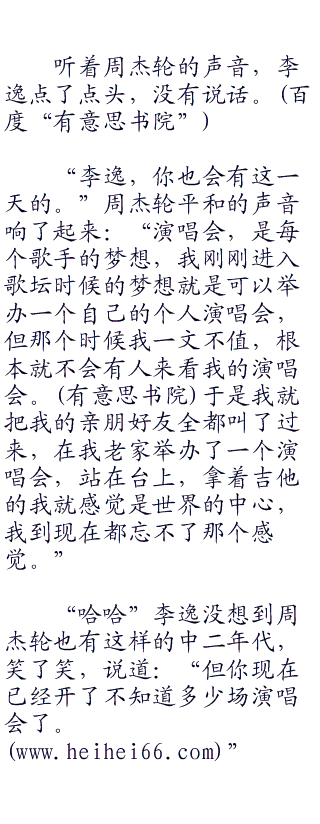 听着周杰轮的声音，李
逸点了点头，没有说话。(百
度“有意思书院”)
“李逸，你也会有这一
天的。”周杰轮平和的声音
响了起来：“演唱会，是每
个歌手的梦想，我刚刚进入
歌坛时候的梦想就是可以举
办一个自己的个人演唱会，
但那个时候我一文不值，根
本就不会有人来看我的演唱
会。(有意思书院)于是我就
把我的亲朋好友全都叫了过
来，在我老家举办了一个演
唱会，站在台上，拿着吉他
的我就感觉是世界的中心，
我到现在都忘不了那个感
觉。”
“哈哈”李逸没想到周
杰轮也有这样的中二年代，
笑了笑，说道：“但你现在
已经开了不知道多少场演唱
会了。
(www.heihei66.com)”